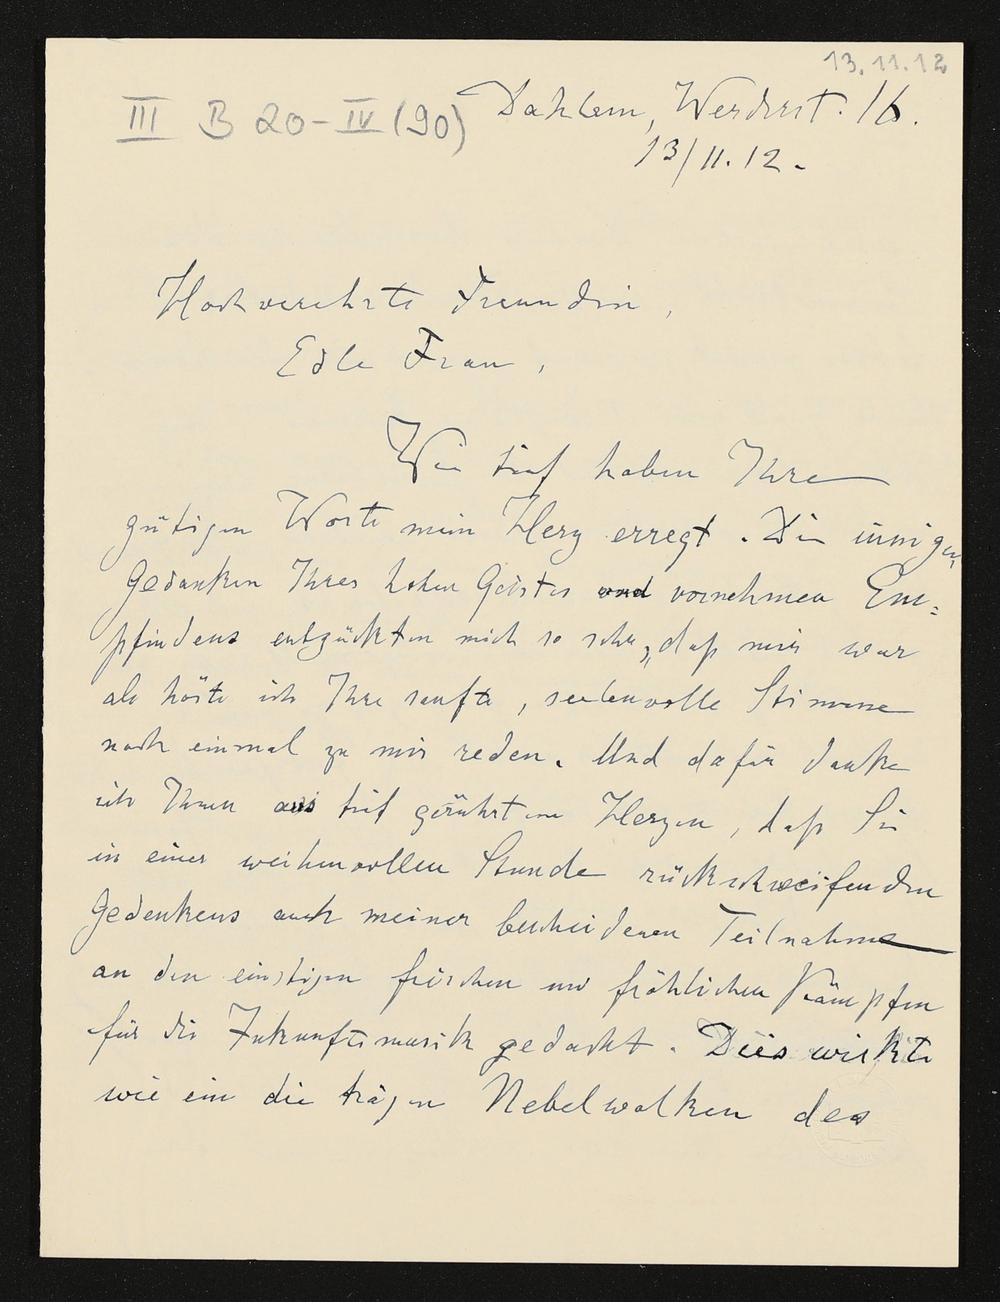 13.11.12
III B 20-IV (90)
Dahlem, Werderst. 16.
13/11.12.-
Hochverehrte Freundin,
Edle Frau,
Wie tief haben Ihre
gütigen Worte mein Herz erregt. Die innigen
Gedanken Ihres hohen Geistes und vornehmen Em=
pfindens entzückten mich so sehr, daß mir war
als hörte ich Ihre sanfte, seelenvolle Stimme
noch einmal zu mir reden. Und dafür danke
ich Ihnen aus tief gerührtem Herzen, daß Sie
in einer weihevollen Stunde rückschweifenden
Gedenkens auch meiner bescheidenen Teilnahme
an den einstigen frischen und fröhlichen Kämpfen
für die Zukunftsmusik gedacht. Dies wirkte
wie ein die trägen Nebelwolken des